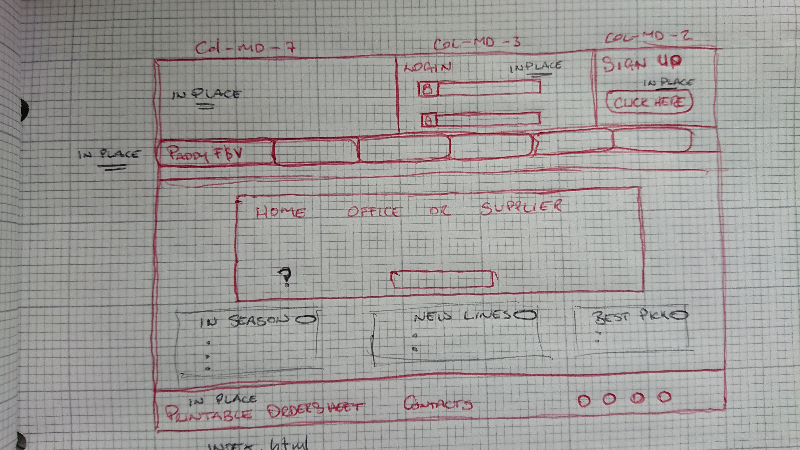 Col-MD-7 COL-MD-3 COL-MD-2
LOGIN IN PLACE SIGN UP
IN PLACE IN PLACE
CLICK HERE
IN PLACE PADDY F&V
HOME OFFICE OR SUPPLIER
?
IN SEASON NEW LINES BEST PICK
IN PLACE
PRINTABLE ORDERSHEET CONTACTS
INTEX.html